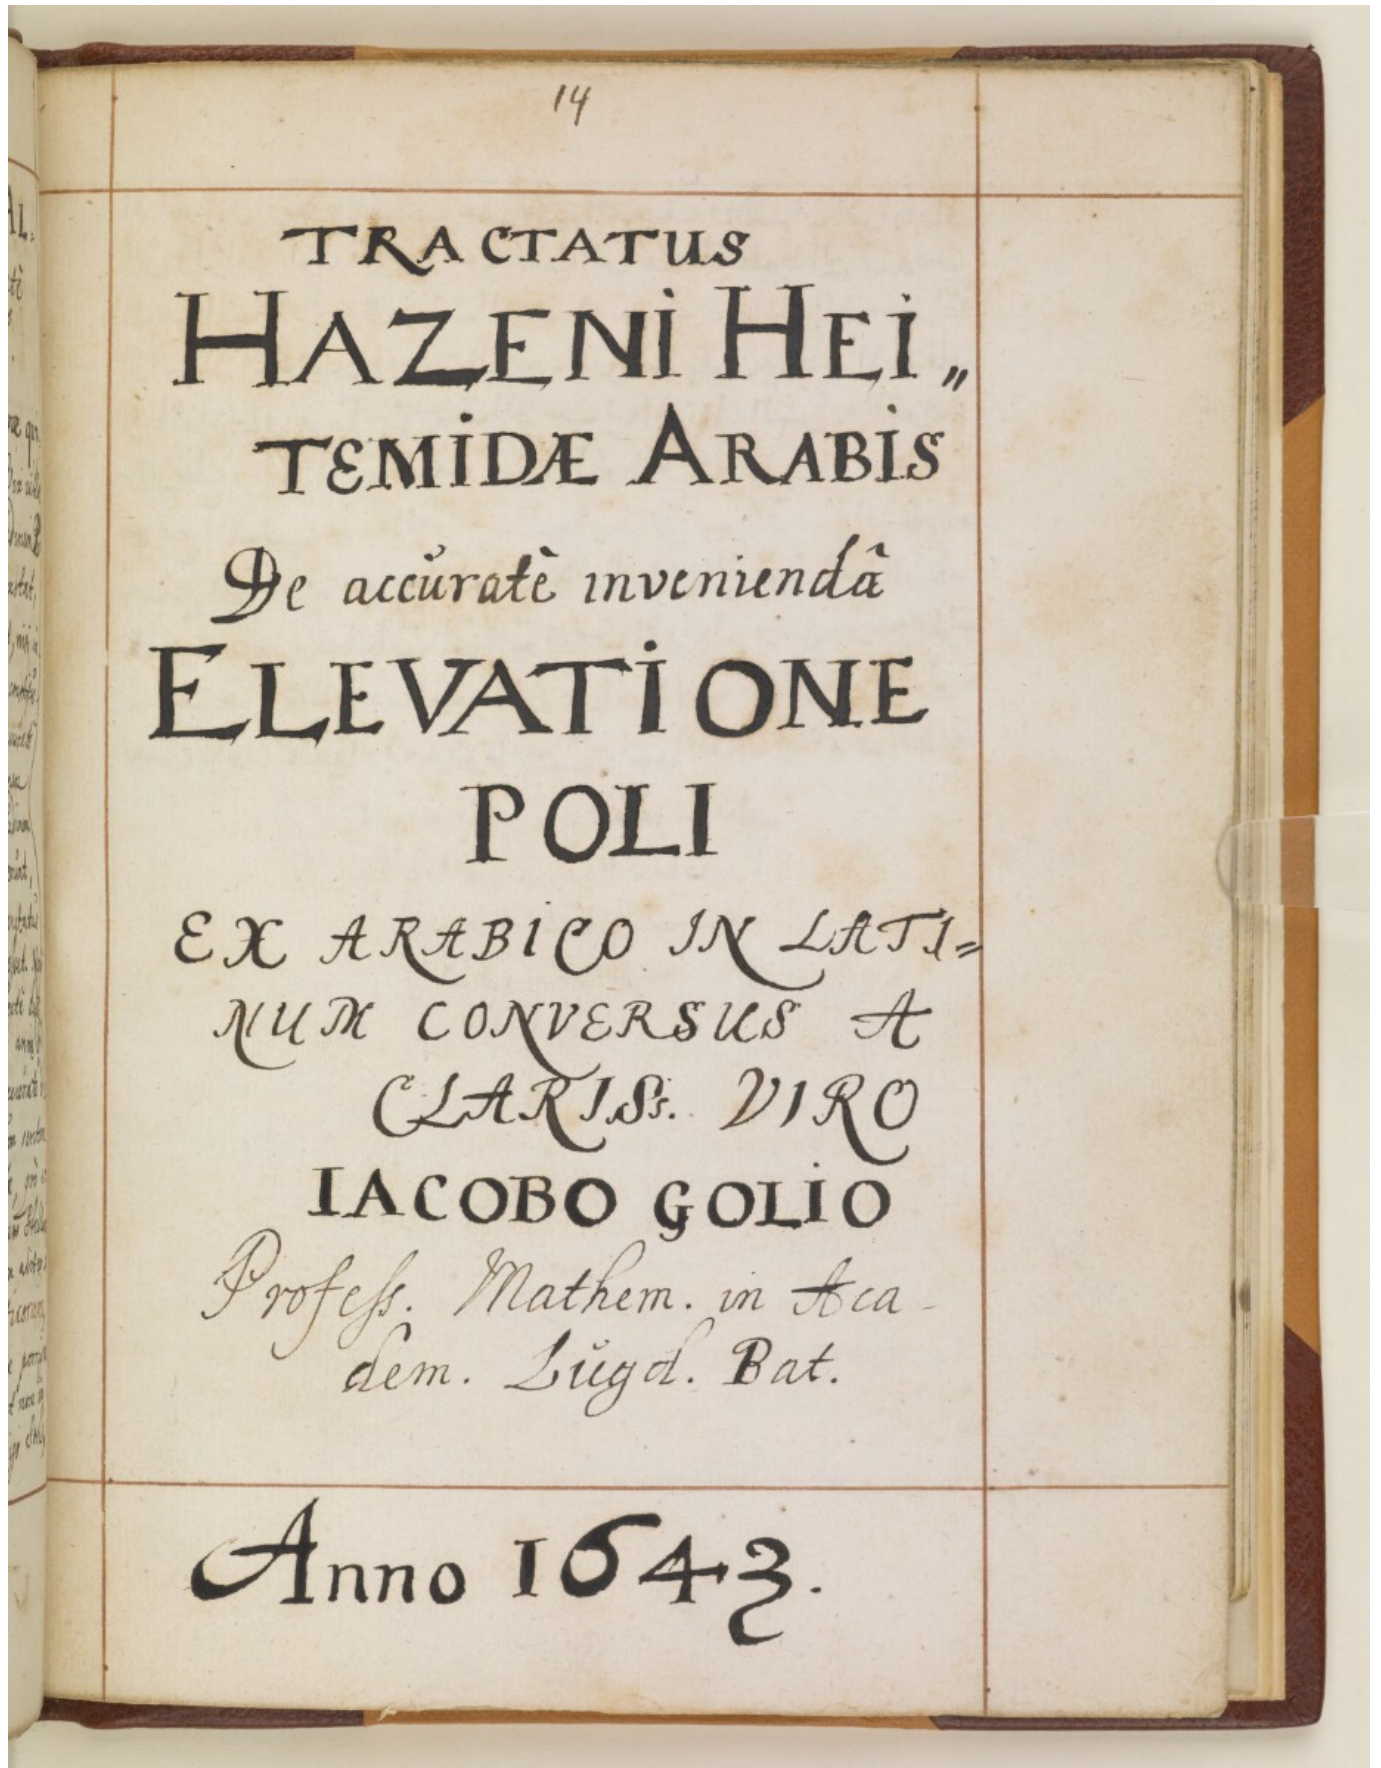 14
TRACTATUS
HAZENI HEI„
TEMIDÆ ARABIS
De accŭratè inveniendâ
ELEVATIONE
POLI
EX ARABICO IN LATI=
NUM CONVERSUS A
CLARISs. VIRO
IACOBO GOLIO
Profeſs. Mathem. in Aca-
dem. Lŭgd. Bat.
Anno 1643.